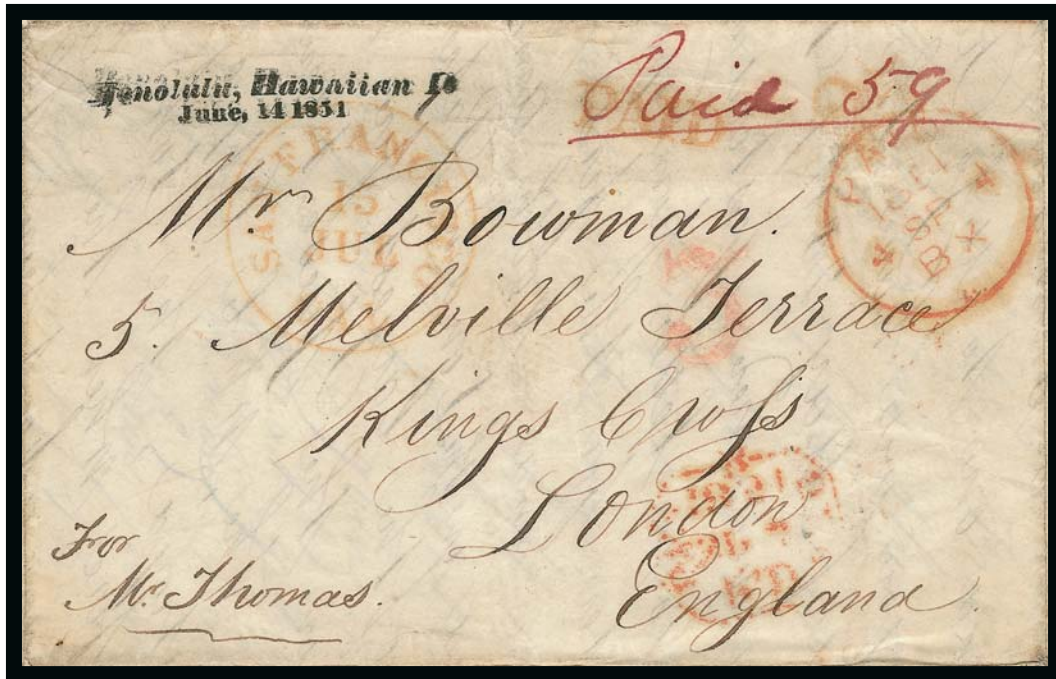 Honolulu, Hawaiian Is
June, 14 1851
Paid 59
PAID
SAN FRANCISCO
15
JUL
Mr Bowman.
5. Melville Terrace
Kings Croſs
London
England
For
Mr. Thomas.
3
BX